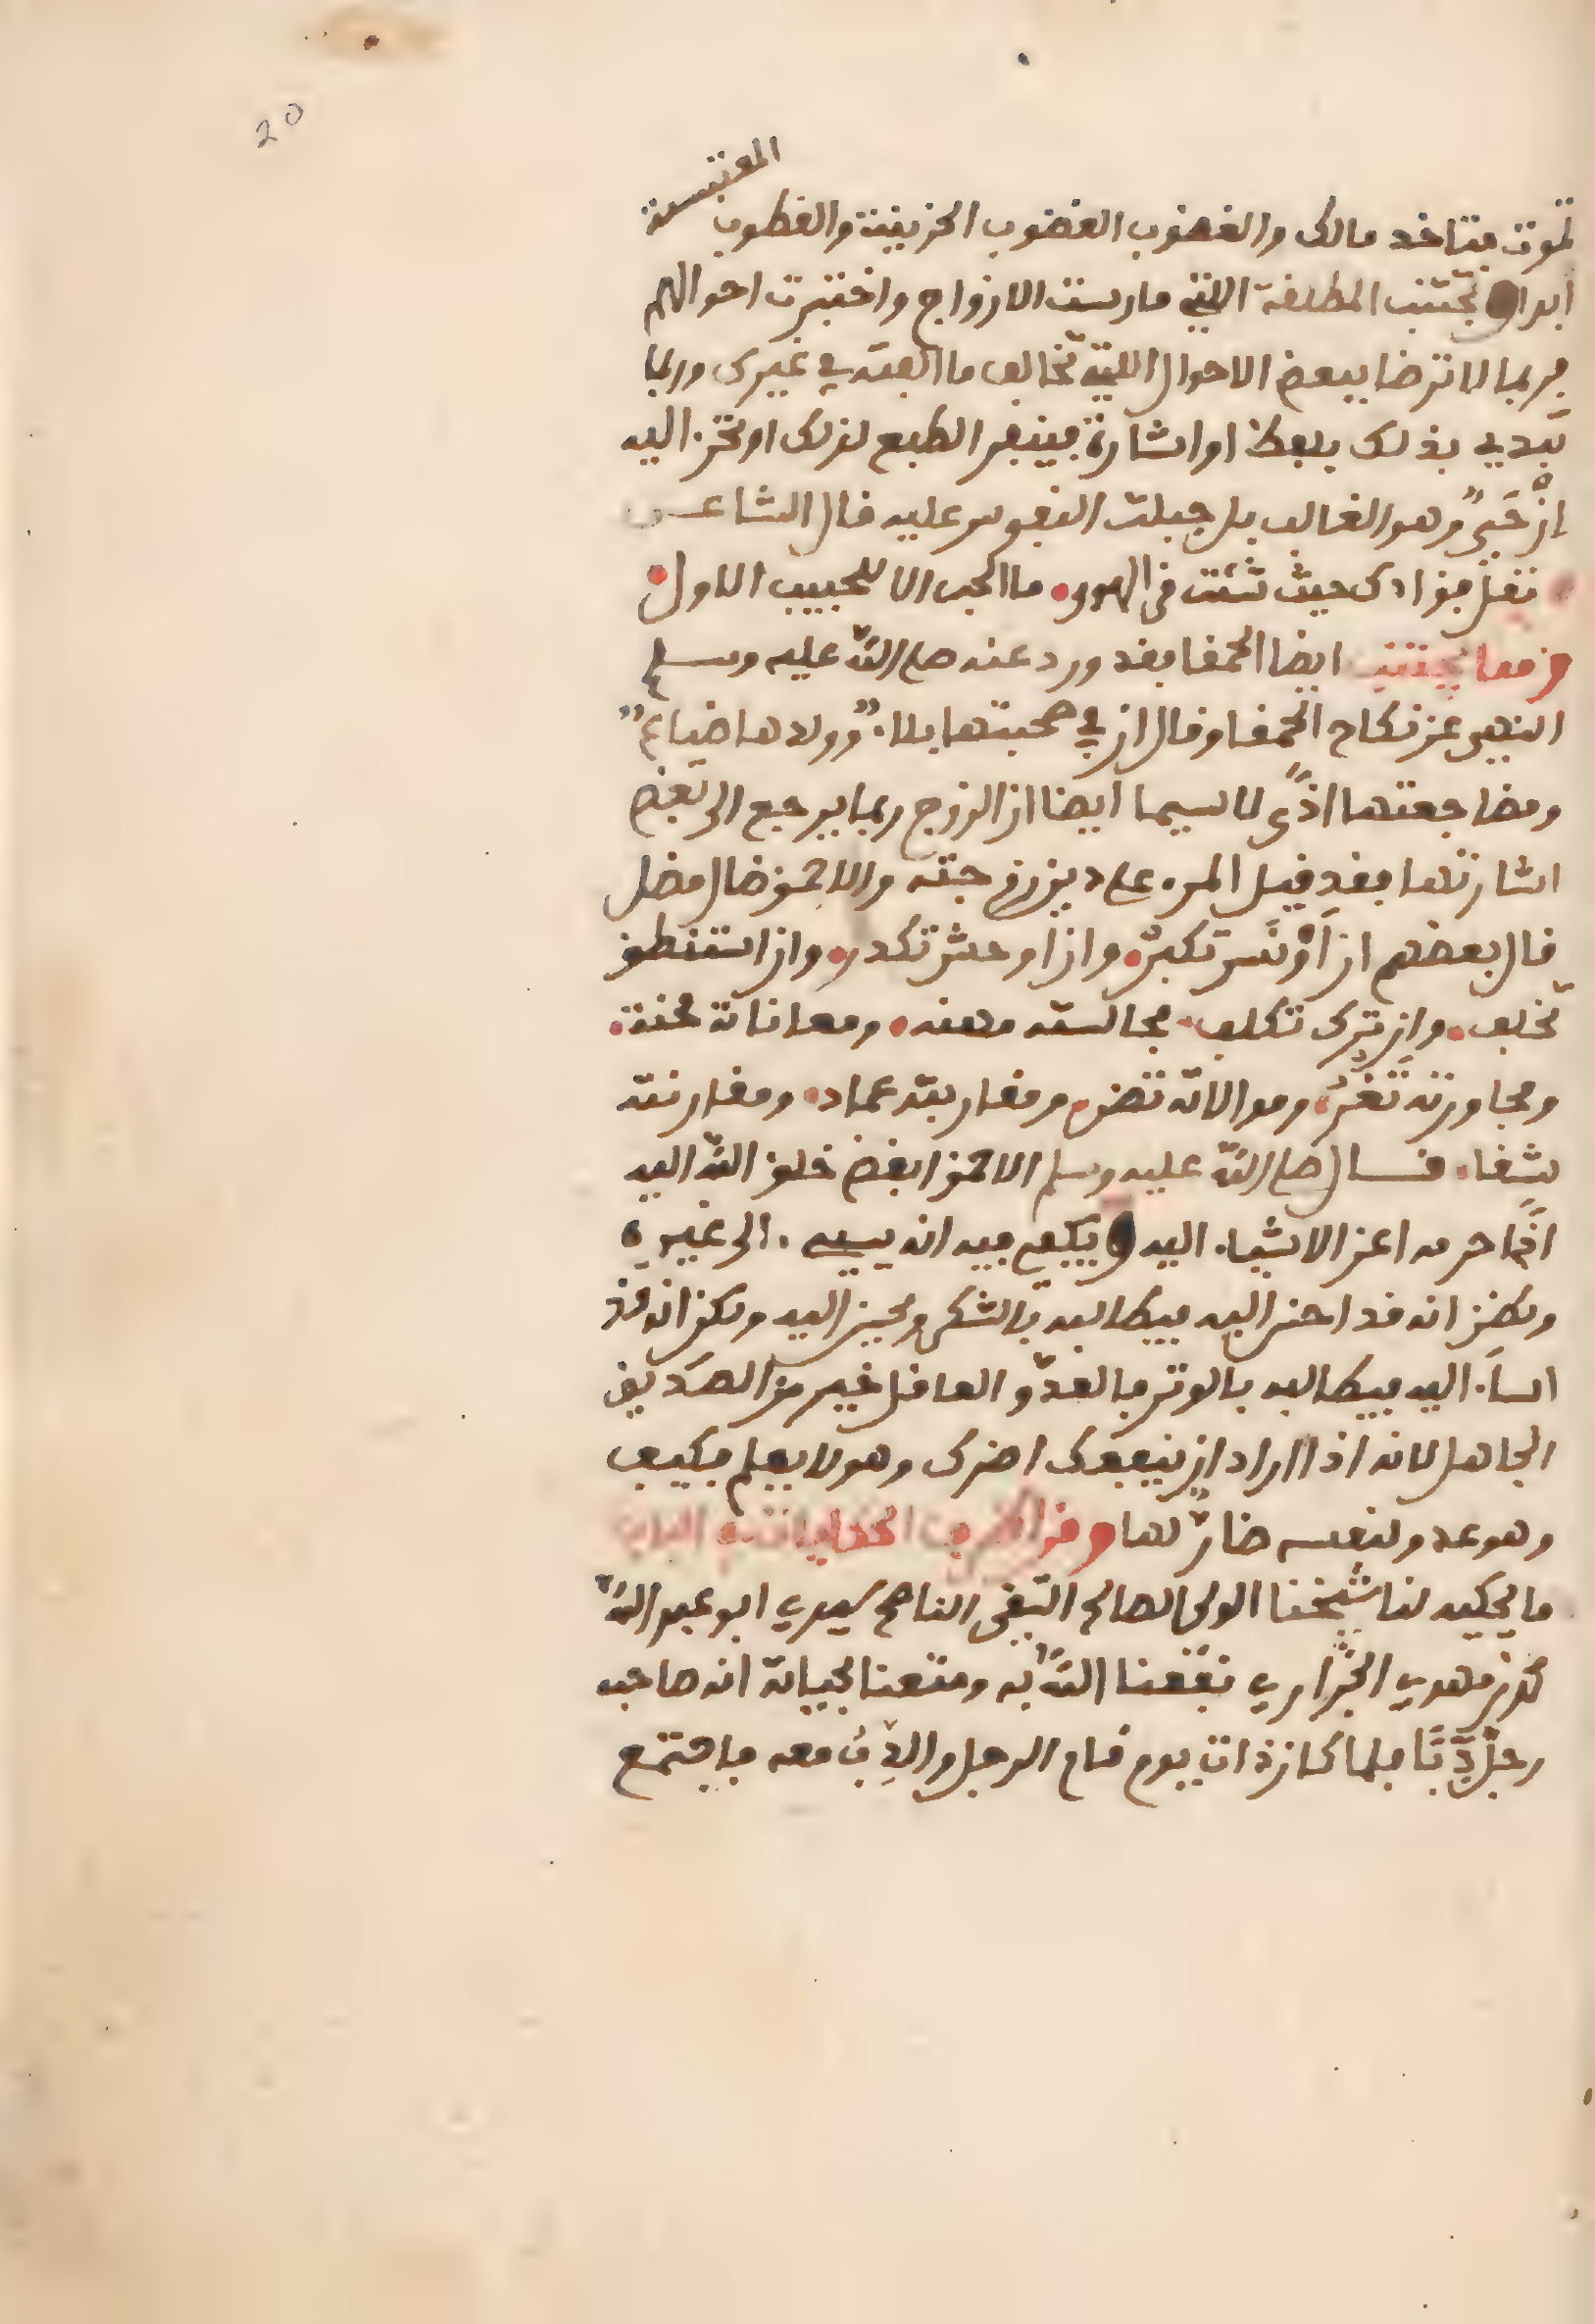 20
المقتبسة
تموت فتاخد مالك والغضوب الغضوب الحزينة والقطوب
ابدا وتجتنب المطلقة اللتي مارست الازواج واختبرت احوالهم
فربما لا ترضا ببعض الاحوال اللتي تخالف ما الفته في غيرك وربما
تبدي بذلك بلفظ او اشارة فينفر الطبع لذلك او تحن اليه
ان خير وهو الغالب بل جبلت النفوس عليه قال الشاعر
نقل فؤادك حيث شئت في الهوى ما الحب الا للحبيب الاول
ومما يجتنب ايضا الحمقا فقد ورد عنه صلى الله عليه وسلم
النهي عن نكاح الحمقا وقال ان في صحبتها بلاء وولدها ضياع
ومضاجعتها اذى لا سيما ايضا ان الزوج ربما يرجع الى بعض
اشارتها فقد قيل المرء على دين زوجته والاحمق ضال مضل
قال بعضهم ان اونس تكبر وان اوحش تكدر وان استنطق
تخلف وان ترك تكلف مجالسته مهنه ومعاناته محنة
ومجاورته تغر وموالاته تضر ومقاربته عماد ومقارنته
شقاء قال صلى الله عليه وسلم الاحمق ابغض خلق الله اليه
اذا حرمه اعز الاشياء اليه ويكفي فيه انه يسيء الى غيره
ويظن انه قد احسن اليه فيطالبه بالشكر ويحسن اليه ويظن انه قد
اساء اليه فيطالبه بالوتر فالعدو العاقل خير من الصديق
الجاهل لانه اذا اراد ان ينفعك اضرك وهو لا يعلم فكيف
وهو عدو لنفسه ضار لها ومن
ما يحكيه لنا شيخنا الولي الصالح التقي الناصح سيدي ابو عبد الله
محمد بن مهدي الجراري نفعنا الله به ومتعنا بحياته انه صاحب
رجل دبا فلما كان ذات يوم قام الرجل والدب معه فاجتمع